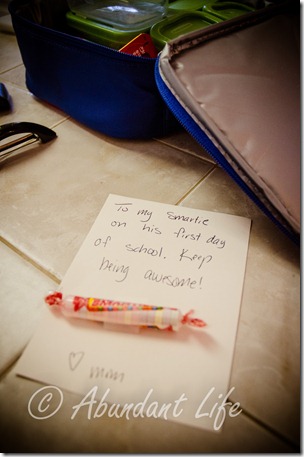 To my smartie
on his first day
of school. Keep
being awesome!
♡ mom
© Abundant Life